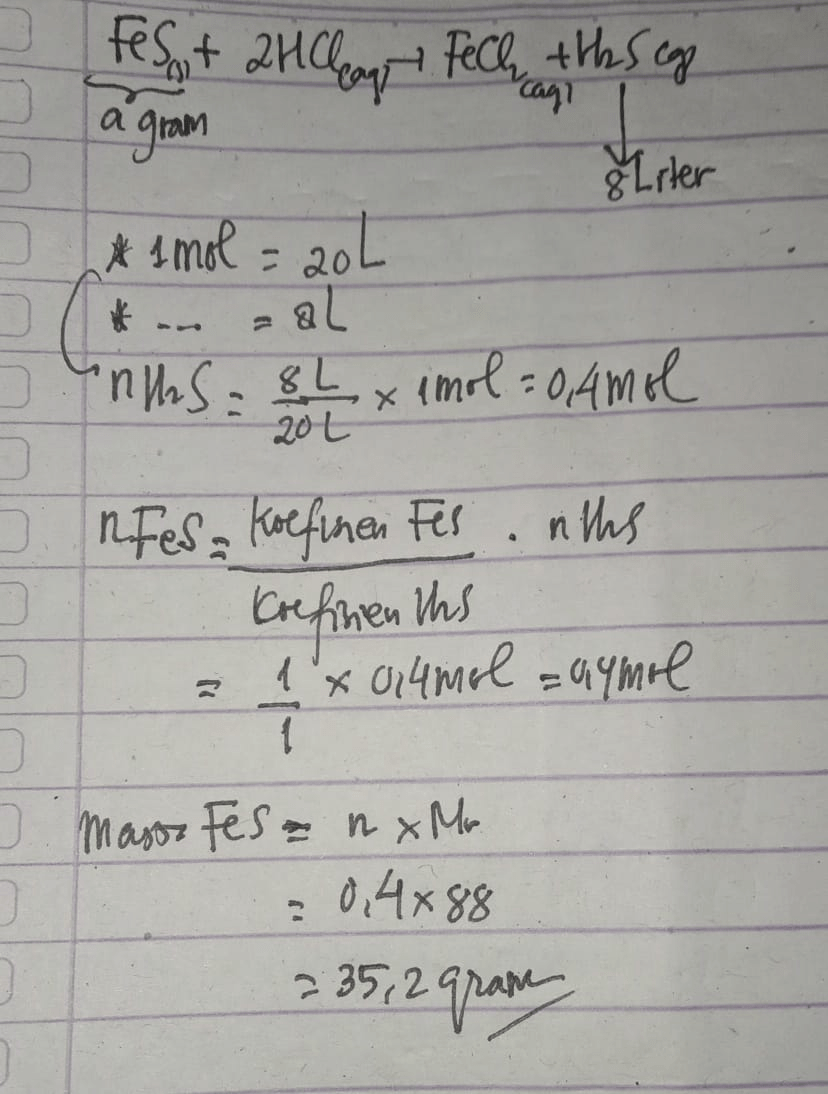 FeS(s) + 2HCl(aq) → FeCl2(aq) + H2S(g)
a gram
8 Liter
* 1 mol = 20 L
* ... = 8 L
nH2S = 8 L / 20 L × 1 mol = 0,4 mol
nFeS = Koefisien FeS / Koefisien H2S . nH2S
= 1/1 × 0,4 mol = 0,4 mol
massa FeS = n × Mr
= 0,4 × 88
= 35,2 gram